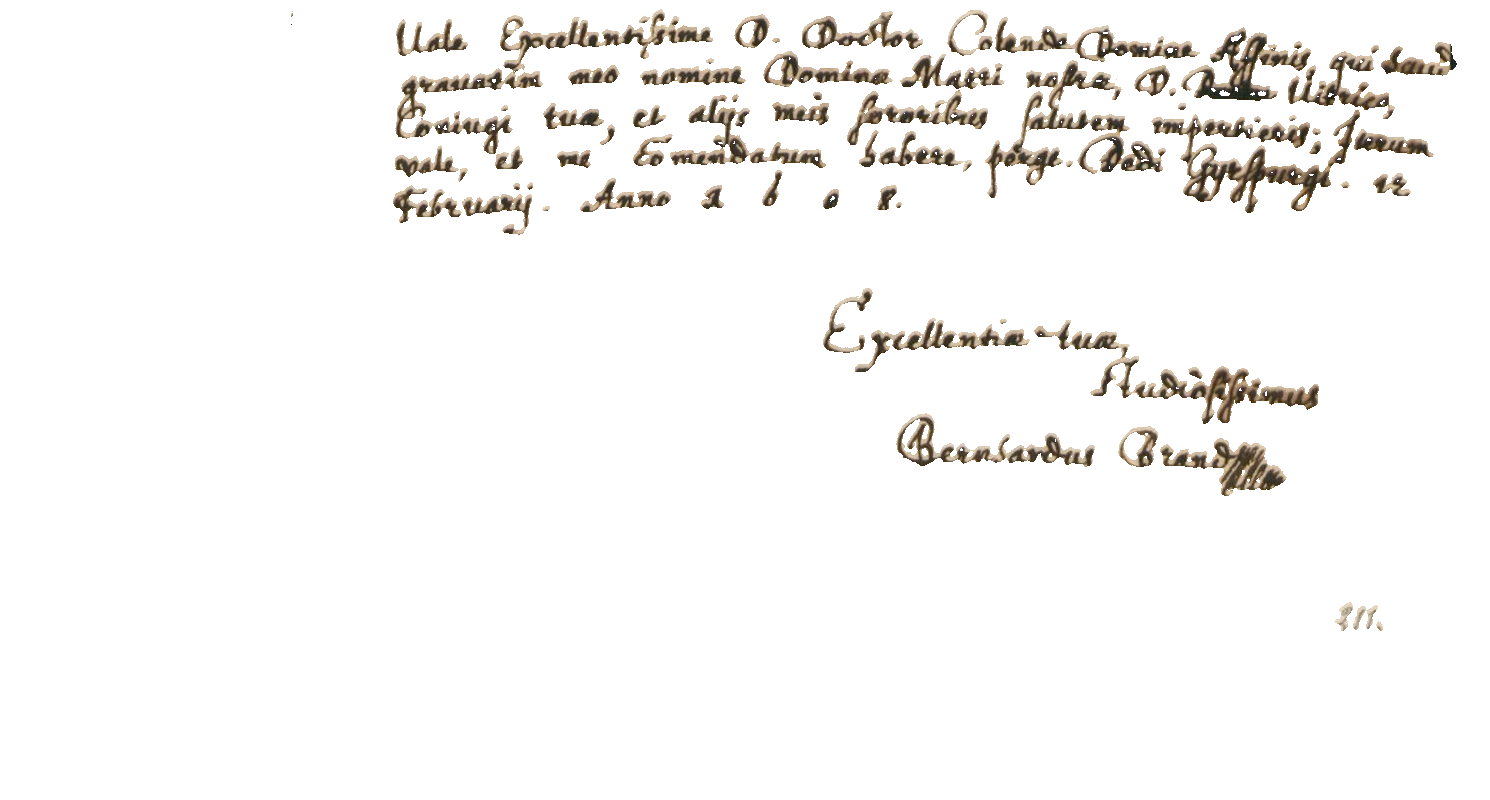 Vale Excellentissime D. Doctor Colende Domine Affinis, qui haud
gravatim meo nomine Dominæ Matri nostræ, D.
Coniugi tuæ, et alijs meis sororibus salutem impertieris; Iterum
vale, et me Comendatum habere, perge. Dedi 12
Februarij. Anno 1608.
Excellentiæ tuæ,
Studiosissimus
Bernhardus Brand
211.